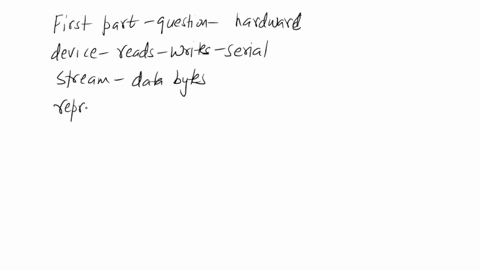 First part - question - hardware
device - reads - writes - serial
stream - data bytes
repr.